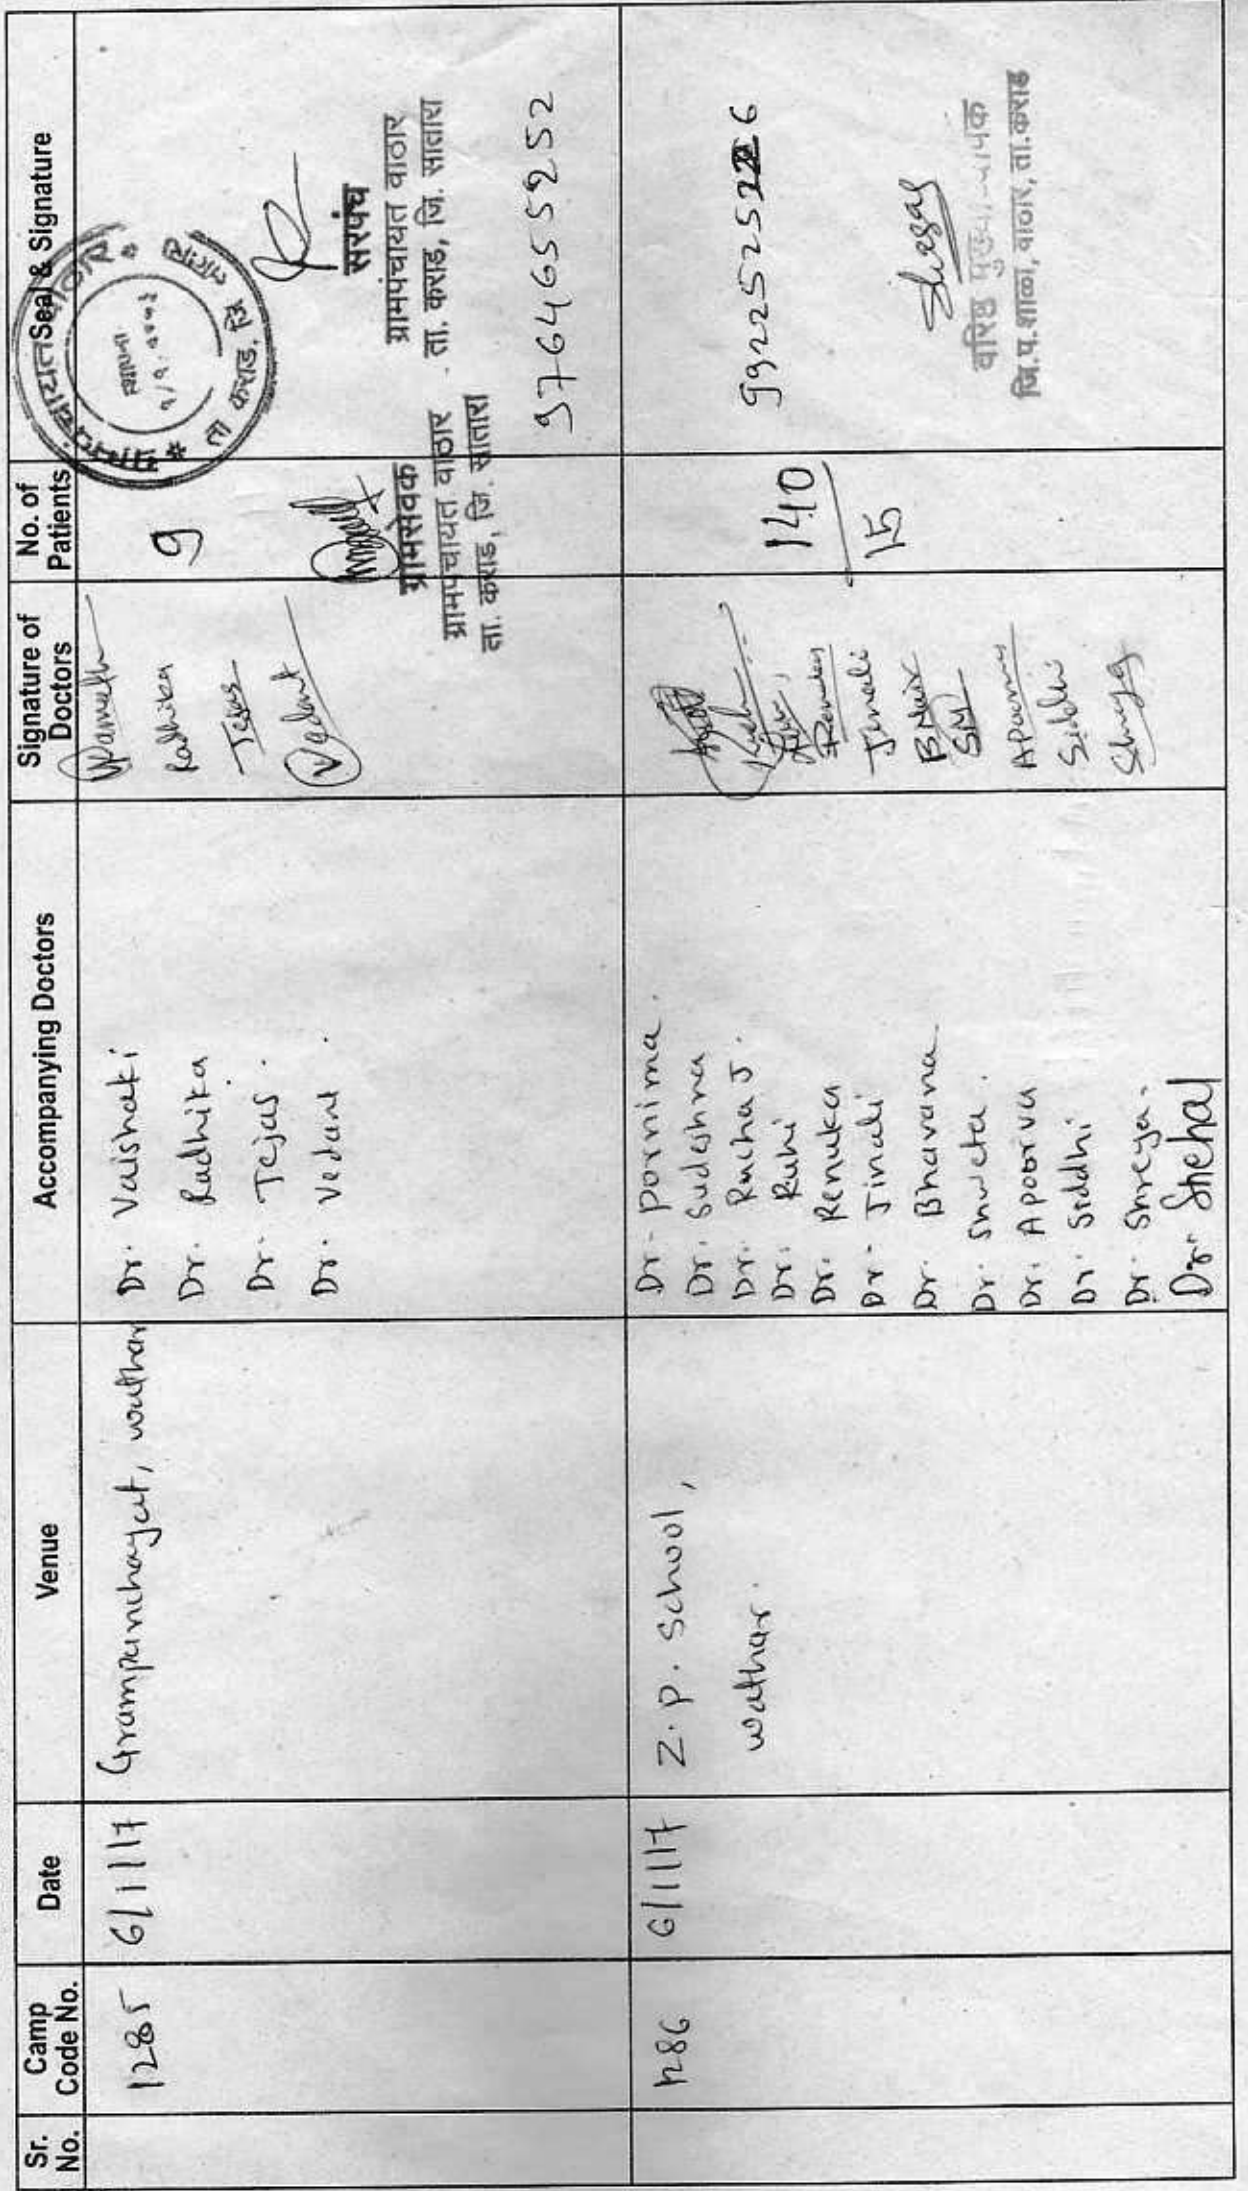 Sr. No.
Camp Code No.
Date
Venue
Accompanying Doctors
Signature of Doctors
No. of Patients
Seal & Signature
1285
6/1/17
Grampanchayat, wathar
Dr. Vaishaki
Dr. Radhika
Dr. Tejas.
Dr. Vedant.
Radhika
Tejas
Vedant
9
ग्रामसेवक
ग्रामपंचायत वाठार
ता. कराड, जि. सातारा
स्थापना
ता कराड, जि सातारा
सरपंच
ग्रामपंचायत वाठार
ता. कराड, जि. सातारा
9764655252
1286
6/1/17
Z.P. School,
wathar.
Dr. Pornima.
Dr. Sudeshna
Dr. Rucha J.
Dr. Ruhi
Dr. Renuka
Dr. Jinali
Dr. Bhavana.
Dr. Shweta.
Dr. Apoorva
Dr. Siddhi
Dr. Shreya.
Dr. Snehal
Renuka
Jinali
BNair
SM
Siddhi
140
15
वरिष्ठ
जि.प.शाळा, वाठार, ता.कराड